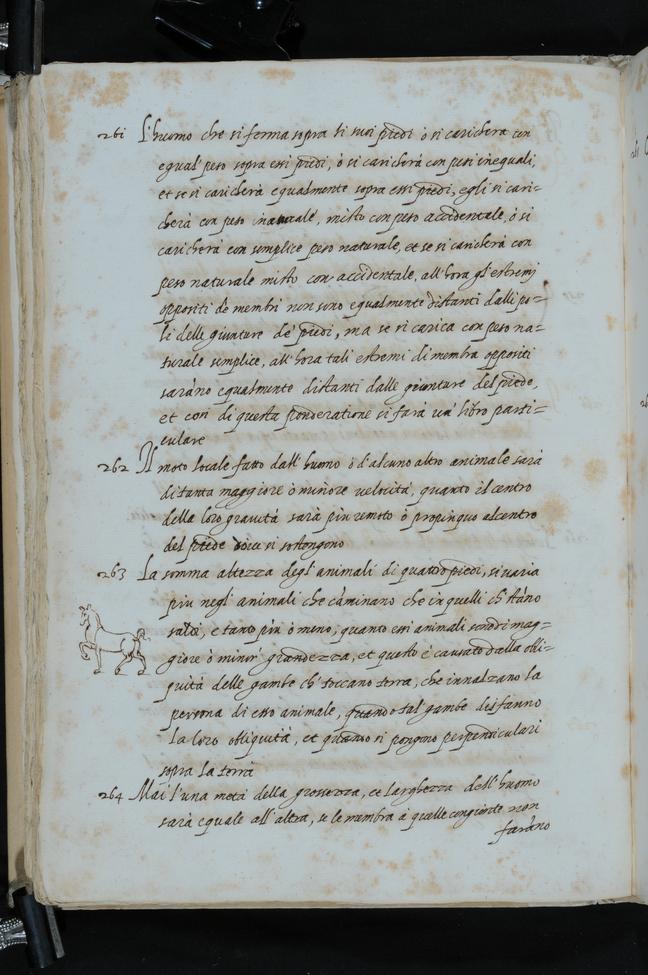 261 L'huomo che si ferma sopra li suoi piedi ò si caricherà con
egual peso sopra essi piedi, ò si caricherà con pesi inequali,
et se si caricherà equalmente sopra essi piedi, egli si cari-
cherà con peso naturale, misto con peso accidentale, ò si
caricherà con semplice peso naturale, et se si caricherà con
peso naturale misto con accidentale, all'hora gl'estremi
oppositi de membri non sono egualmente distanti dalli po-
li delle giunture de piedi, ma se si carica con peso na-
turale simplice, all'hora tali estremi di membra oppositi
saràno equalmente distanti dalle giunture del piede,
et così di questa ponderatione si farà un' libro parti-
culare
262 Il moto locale fatto dall'huomo ò d'alcuno altro animale sarà
di tanta maggiore ò minore velocità, quanto il centro
della loro gravità sarà piu remoto ò propinquo al centro
del piede dove si sostengono
263 La somma altezza degl'animali di quattro piedi, si varia
piu negli animali che càminano che in quelli ch' stàno
saldi, e tanto più ò meno, quanto essi animali sono di mag-
giore ò minor' grandezza, et questo è causato dalla obli-
quità delle gambe ch' toccano terra, che innalzano la
persona di esso animale, quando tal gambe disfanno
la loro obliquità, et quando si pongono perpendiculari
sopra la terra
264 Mai l'una metà della grossezza, ee larghezza dell'huomo
sarà equale all'altra, se le membra à quelle congionte non
faràno